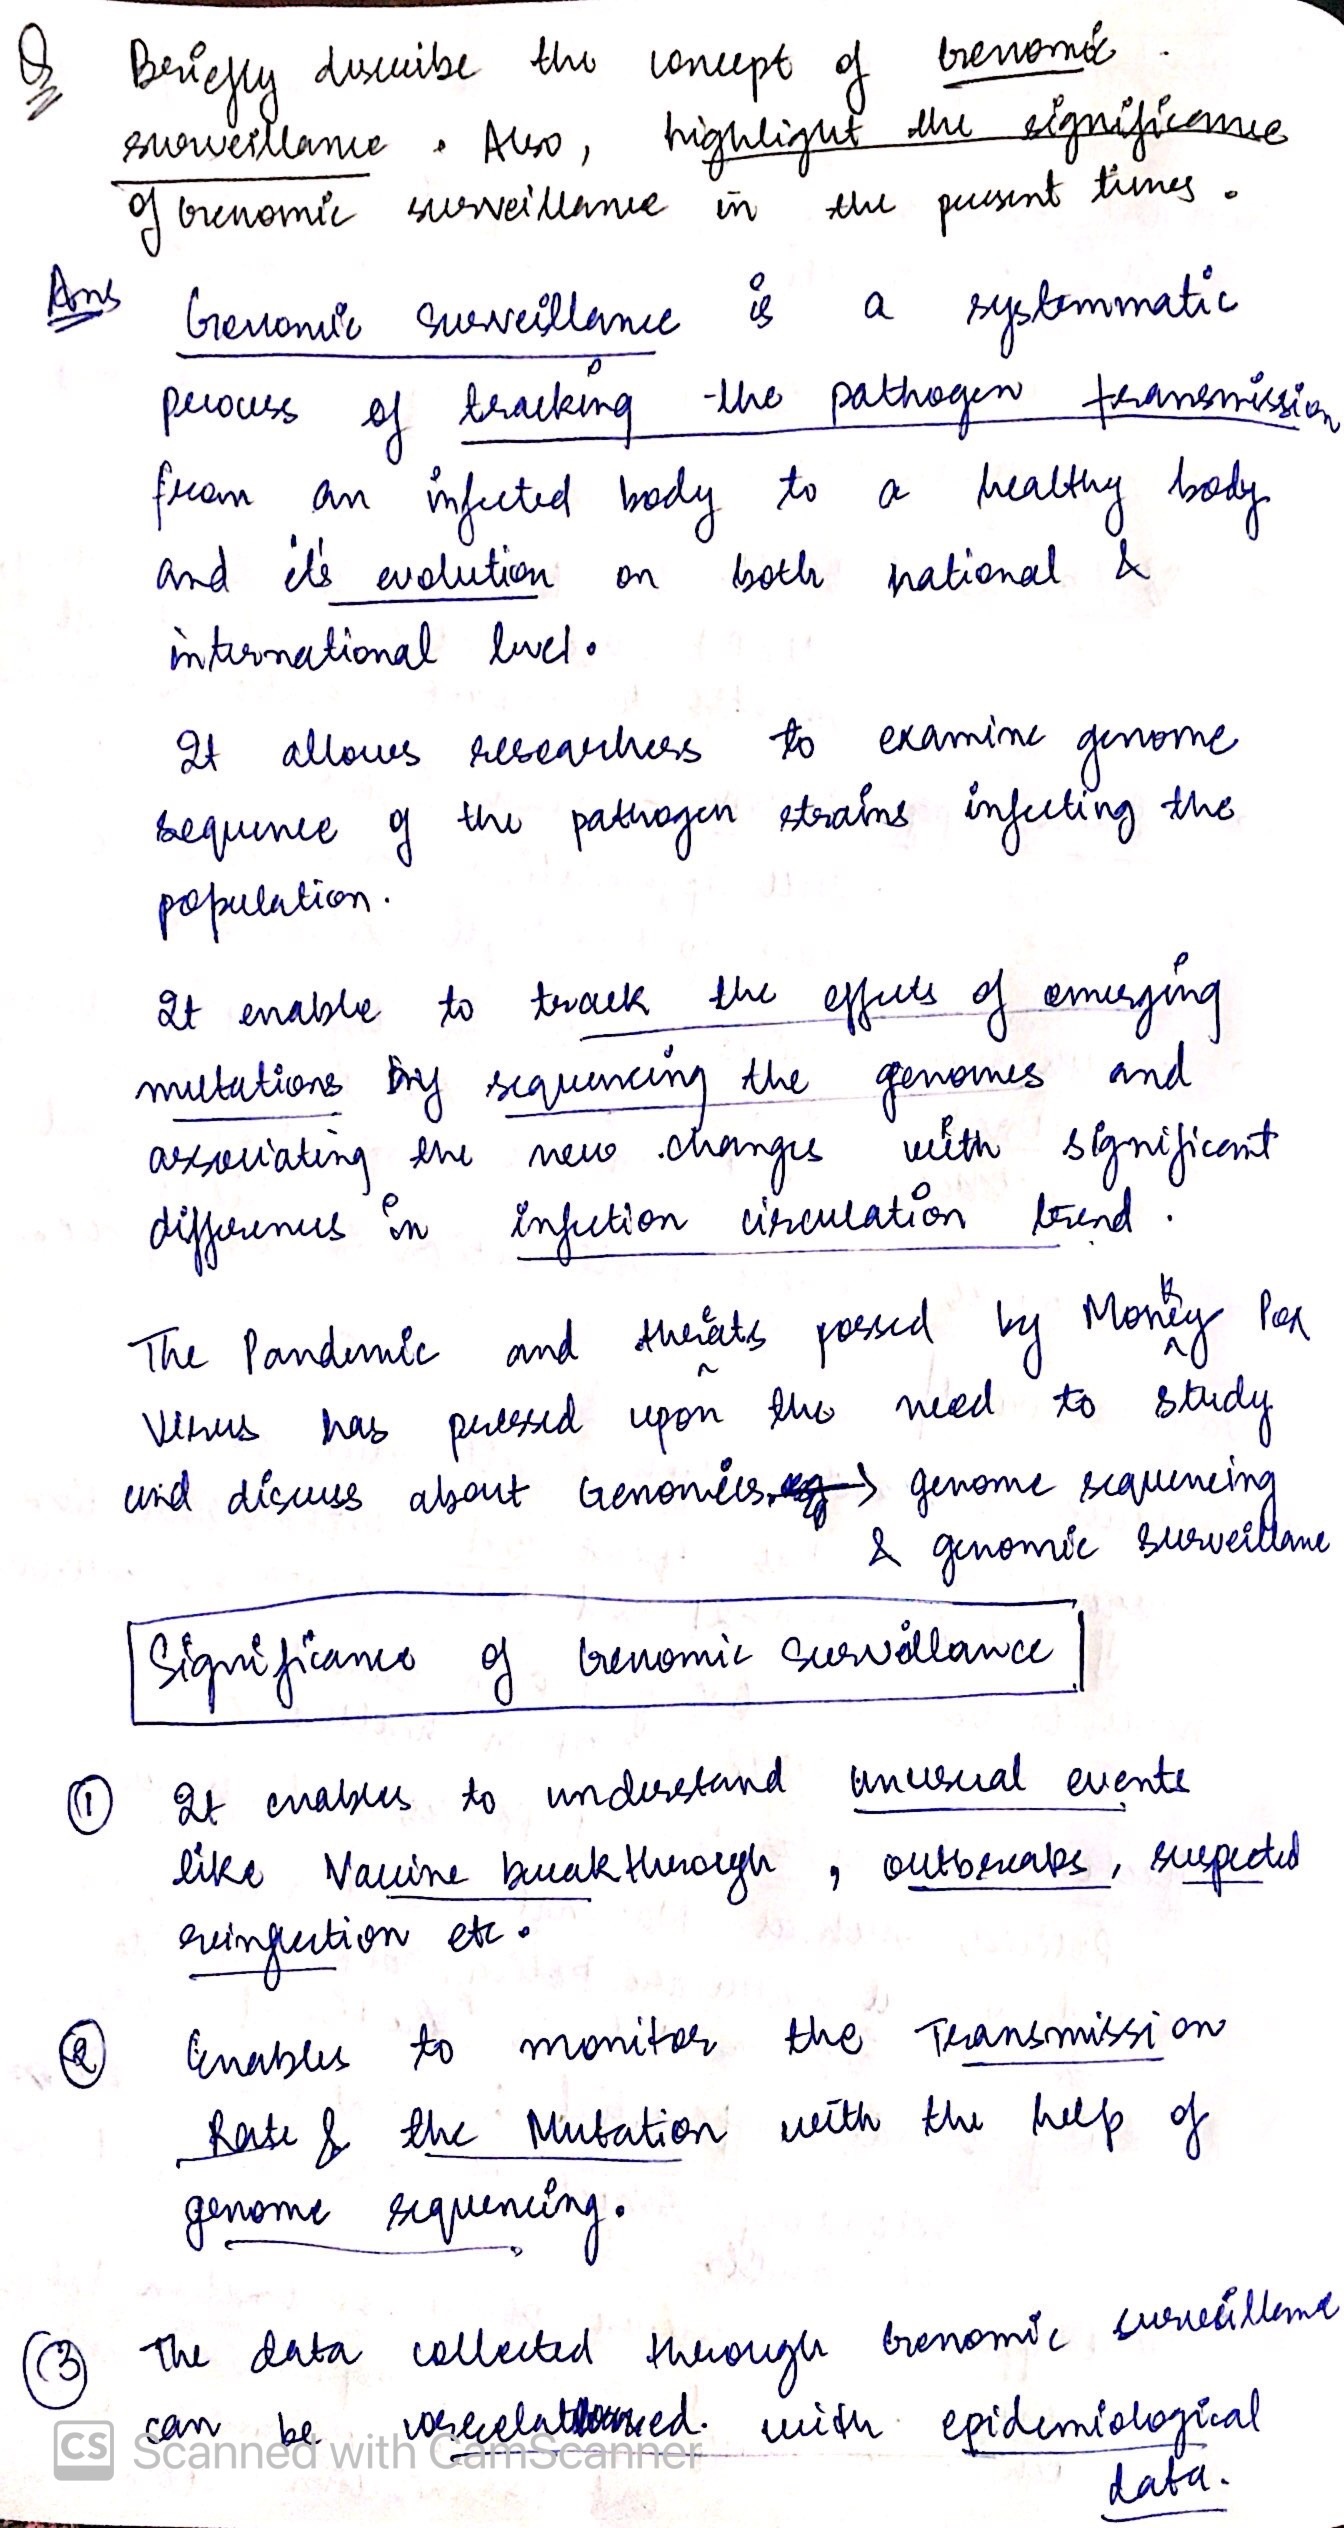 Q Briefly describe the concept of Genomic
surveillance. Also, highlight the significance
of Genomic surveillance in the present times.
Ans Genomic Surveillance is a systemmatic
process of tracking the pathogen transmission
from an infected body to a healthy body
and it's evolution on both national &
international level.
It allows researchers to examine genome
sequence of the pathogen strains infecting the
population.
It enable to track the effects of emerging
mutations by sequencing the genomes and
associating the new changes with significant
differences in infection circulation trend.
The Pandemic and threats possed by Monkey Pox
Virus has pressed upon the need to study
and discuss about Genomics. → genome sequencing
& genomic surveillance
Significance of Genomic Surveillance
① It enables to understand unusual events
like Vaccine breakthrough, outbreaks, suspected
reinfection etc.
② Enables to monitor the Transmission
Rate & the Mutation with the help of
genome sequencing.
③ The data collected through Genomic surveillance
can be with epidemiological
data.
CS Scanned with CamScanner